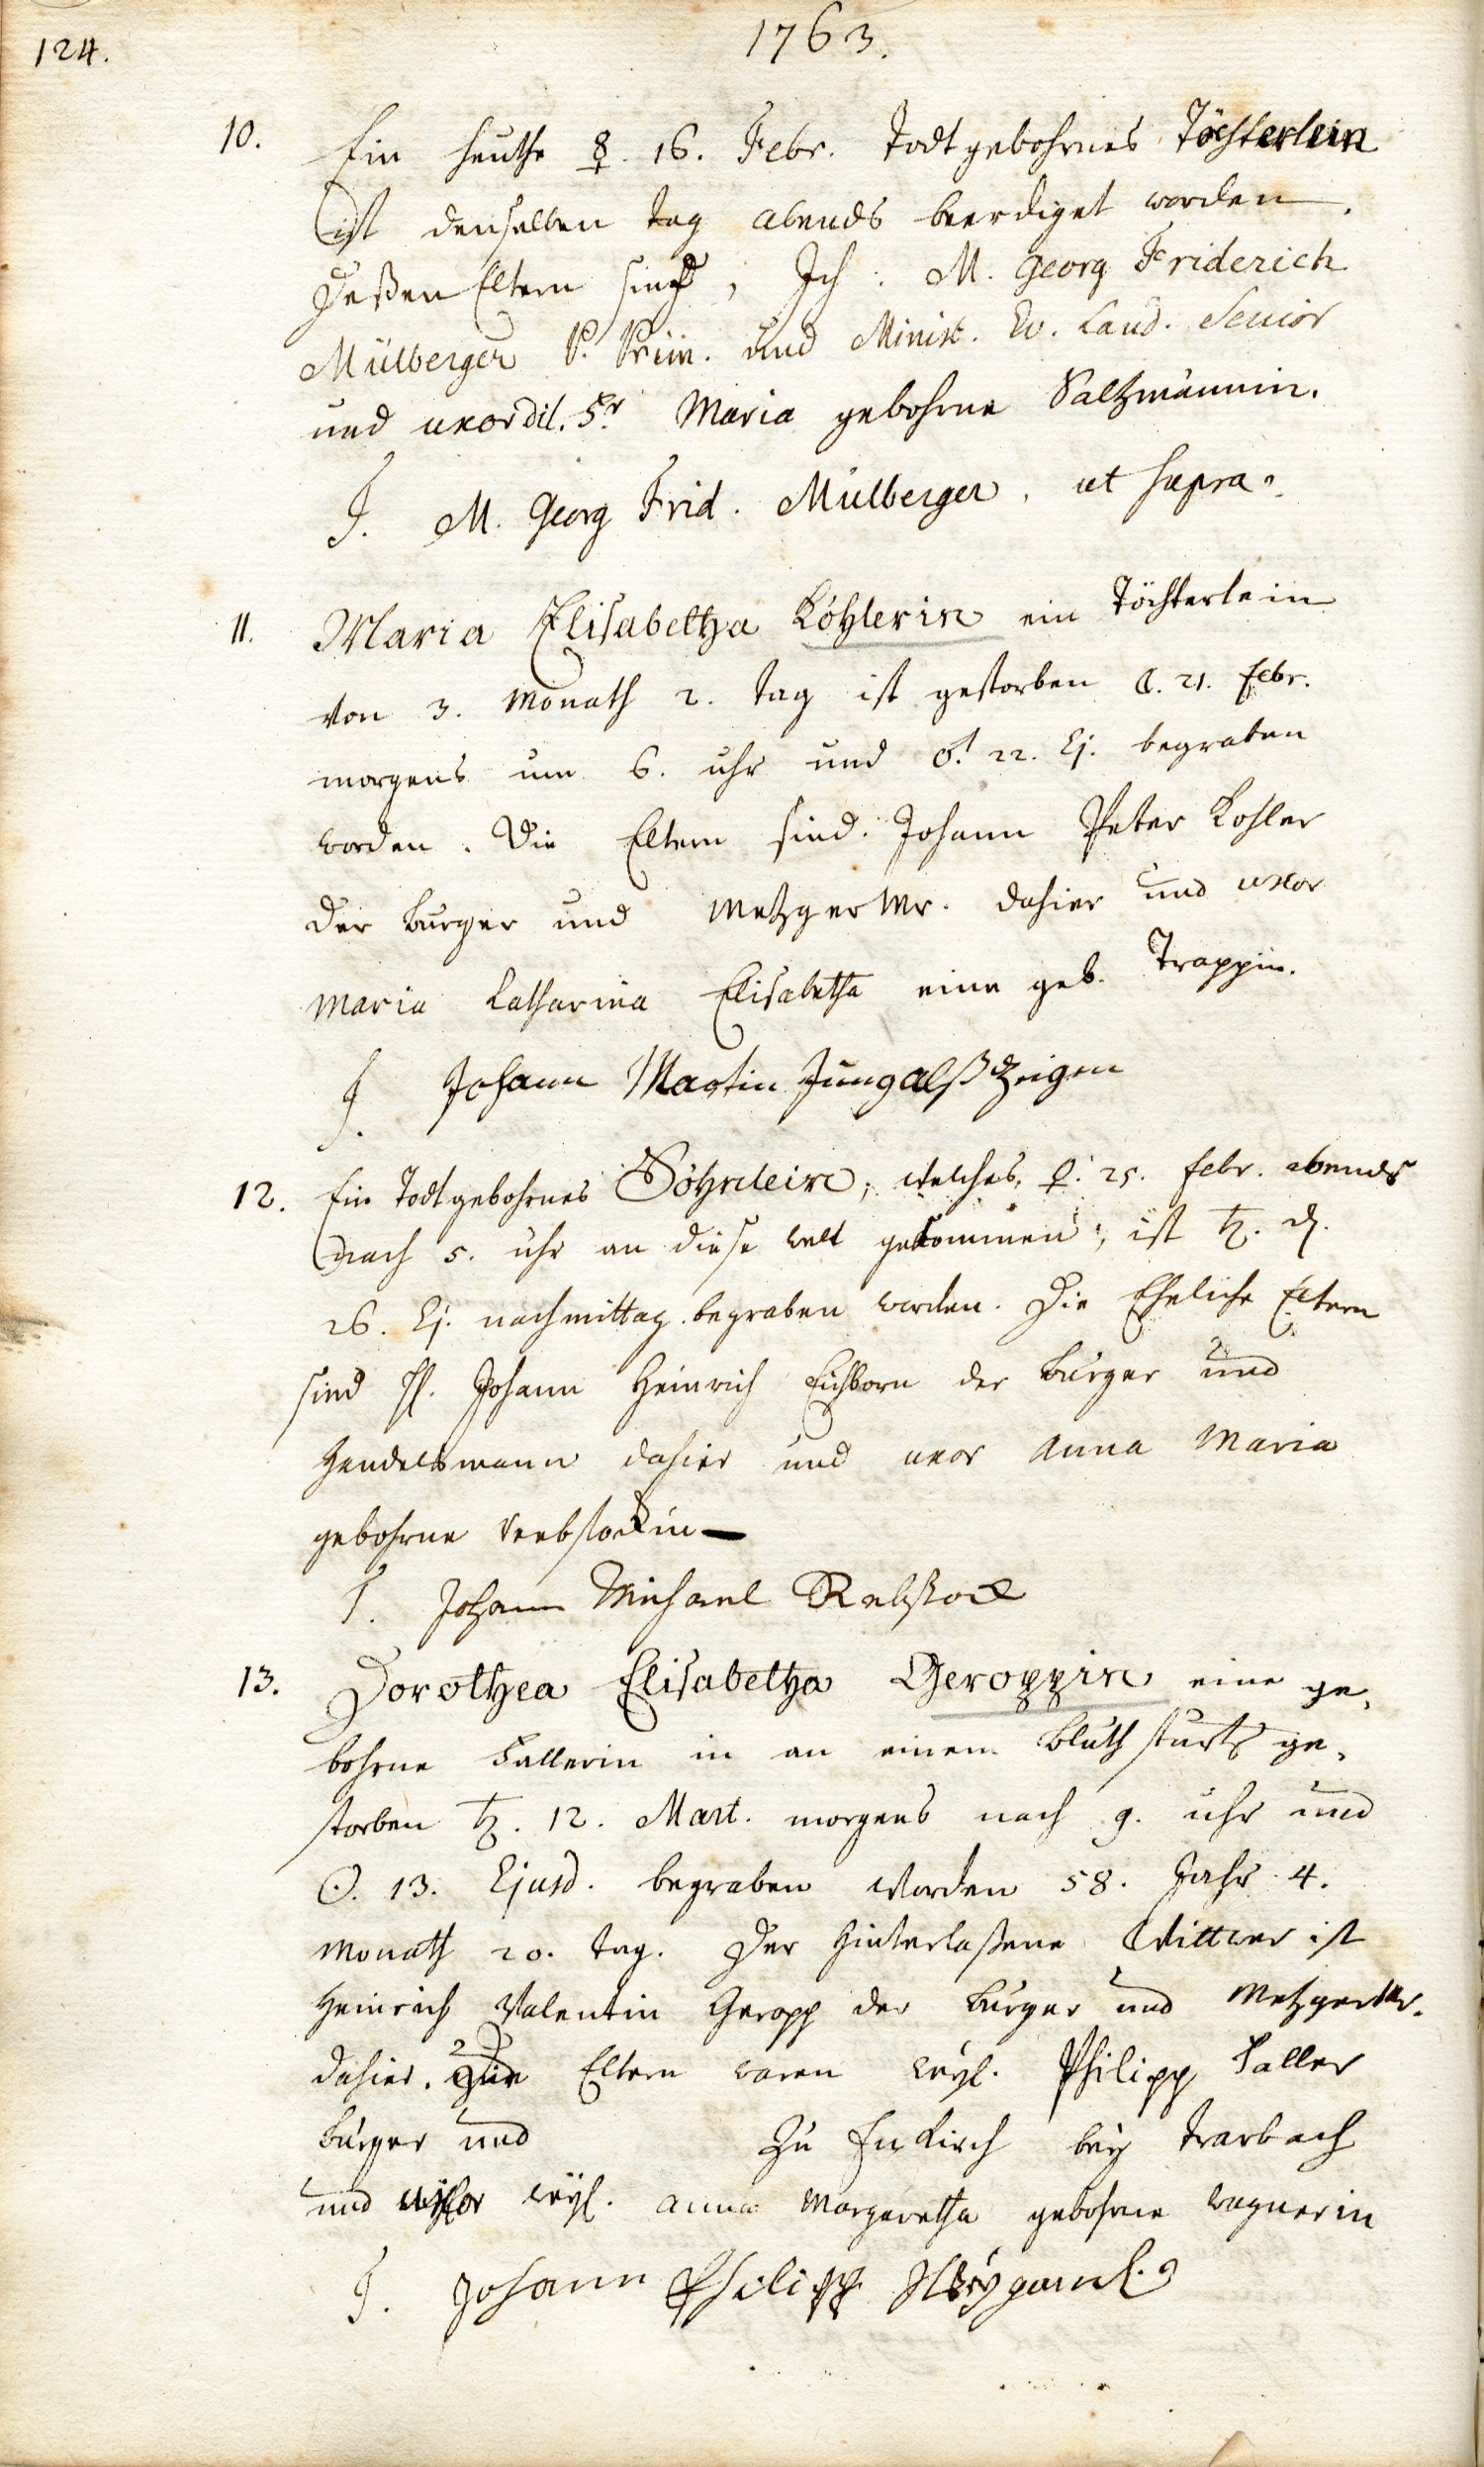 124.
1763.
10. Ein heuthe ☿. 16. Febr. todtgebohrnes Töchterlein
ist denselben tag abends beerdiget worden.
Deßen Eltern sind, Ich: M. Georg Friderich
Mülberger P. Prim. und Minist. Ev. Land. Senior
und uxor dil. Fr Maria gebohrne Saltzmännin.
T. M. Georg Frid. Mülberger. ut supra.
11. Maria Elisabetha Köhlerin ein Töchterlein
von 3. Monath 2. tag ist gestorben ☾. 21. febr.
morgens um 6. uhr und ♂. 22. Ej. begraben
worden. Die Eltern sind. Johann Peter Kohler
der burger und Metzger Mr. dahier und uxor
Maria Catharina Elisabetha eine geb. Trappin.
T. Johann Martin Jung alß Zeigen
12. Ein todtgebohrnes Söhnlein, welches ♀. 25. febr. abends
nach 5. uhr an diese welt gekommen; ist ♄. d.
26. Ej. nachmittag begraben worden. Die Eheliche Eltern
sind H. Johann Heinrich Eichborn der burger und
Handelsmann dahier und uxor Anna Maria
gebohrne Rebstockin
T. Johann Michael Rebstock
13. Dorothea Elisabetha Geroppin eine ge-
bohrne Fallerin in an einem bluthsturtz ge-
storben ♄. 12. Mart. morgens nach 9. uhr und
☉. 13. Ejusd. begraben worden 58. Jahr 4.
Monath 20. tag. Der hinterlaßene Wittwer ist
Heinrich Valentin Geropp der burger und Metzger Mr.
dahier. Die Eltern waren weyl. Philipp Faller
burger und zu Enkirch bey Trarbach
und uxor weyl. anna Margaretha gebohrne wagnerin
T. Johann Philipp Weygand